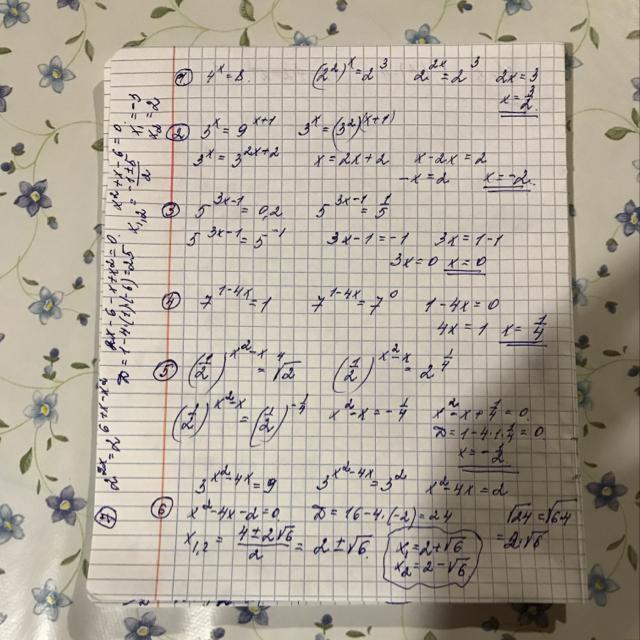 ① 4^x = 8. (2^2)^x = 2^3 2^{2x} = 2^3 2x = 3
x = 3/2.
② 3^x = 9^{x+1} 3^x = (3^2)^{(x+1)}
3^x = 3^{2x+2} x = 2x + 2 x - 2x = 2
-x = 2 x = -2.
③ 5^{3x-1} = 0,2 5^{3x-1} = 1/5
5^{3x-1} = 5^{-1} 3x - 1 = -1 3x = 1 - 1
3x = 0 x = 0
④ 7^{1-4x} = 1 7^{1-4x} = 7^0 1 - 4x = 0
4x = 1 x = 1/4
⑤ (1/2)^{x^2-x} = ⁴√2 (1/2)^{x^2-x} = 2^{1/4}
(1/2)^{x^2-x} = (1/2)^{-1/4} x^2 - x = -1/4 x^2 - x + 1/4 = 0
D = 1 - 4·1·1/4 = 0
x = -1/2
3^{x^2-4x} = 9 3^{x^2-4x} = 3^2 x^2 - 4x = 2
⑥ x^2 - 4x - 2 = 0 D = 16 - 4·(-2) = 24 √24 = √6·4
x_{1,2} = (4 ± 2√6)/2 = 2 ± √6. = 2√6
x_1 = 2 + √6
x_2 = 2 - √6
⑦ 2^{2x} = 2^{6+x-x^2} 2x - 6 - x + x^2 = 0. x^2 + x - 6 = 0. x_1 = -3
D = 1 - 4·(1)·(-6) = 25 x_{1,2} = (-1 ± 5)/2 x_2 = 2